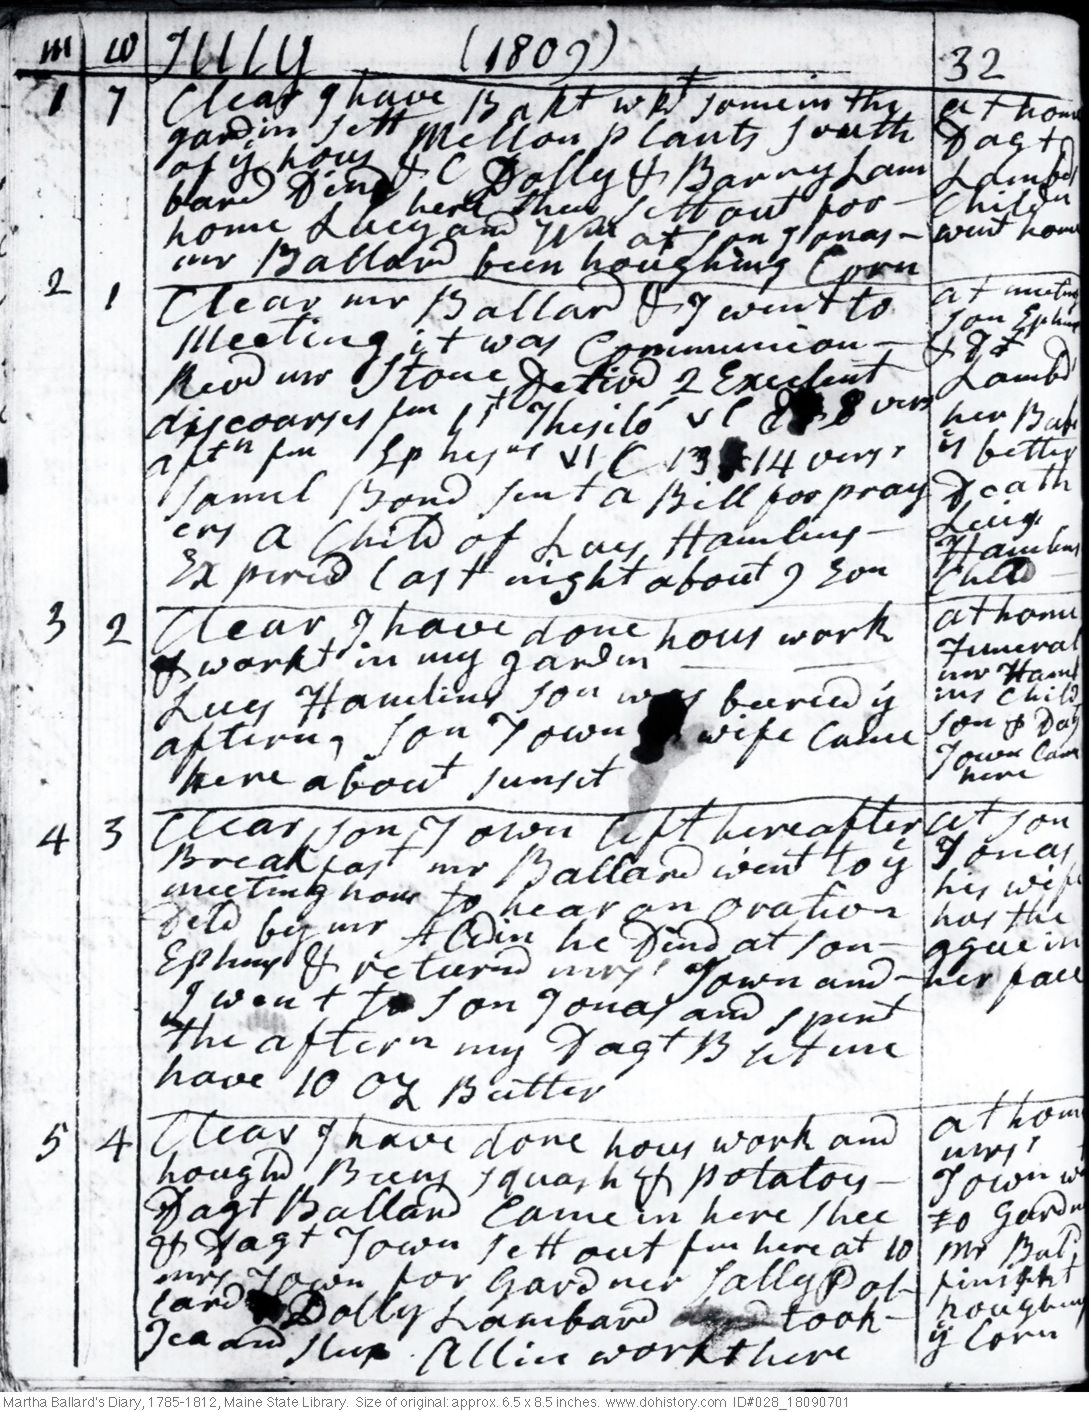 m w July (1809) 32
1 7 Clear I have Bakt wkt some in the
gardin sett Mellon plants South
of ye hous & C Dolly & Barny Lam
bard Dind here Shee sett out for
home Lucy and Wm at son Jonas
mr Ballard been houghing Corn
at home
Dagt
Lambd
Childn
went home
2 1 Clear mr Ballard & I went to
Meeting it was Communion
Revd mr Stone Delivd 2 Excelent
discoarses fm 1st Thesilo V C 8 vers
aftn fm Ephess VI C 13 14 verss
Samul Bond sent a Bill for pray
ers a Child of Lucy Hamlins
Expired last night about 9 Eon
at meeting
son Ephm
& Dt
Lambd
her Babe
is better
Death
Lucy
Hamlins
Child
3 2 Clear I have done hous work
& workt in my gardin
Lucy Hamlins son was buried ye
aftern, son Town wife Came
here about sunset
at home
Funeral
mr Ham
ins Child
son & Dagt
Town Came
here
4 3 Clear, son Town left here after
Breakfast mr Ballard went to ye
meeting hous to hear an oration
Deld by mr Aldin he Dind at son
Ephms & returnd mrs Town and
I went to son Jonas and spent
the aftern my Dagt B let me
have 10 oz Butter
at son
Jonas
his wife
has the
ague in
her face
5 4 Clear I have done hous work and
hought Beens squash & potatoys
Dagt Ballard Came in here Shee
& Dagt Town sett out fm here at 10
mrs Town for Gardner Sally Pol-
lard Dolly Lambard took
Tea and slep. Allin workt here
at home
mrs
Town wt
to Gardnr
mr Bald
finisht
houghing
ye Corn
Martha Ballard's Diary, 1785-1812, Maine State Library. Size of original: approx. 6.5 x 8.5 inches. www.dohistory.com ID#028_18090701